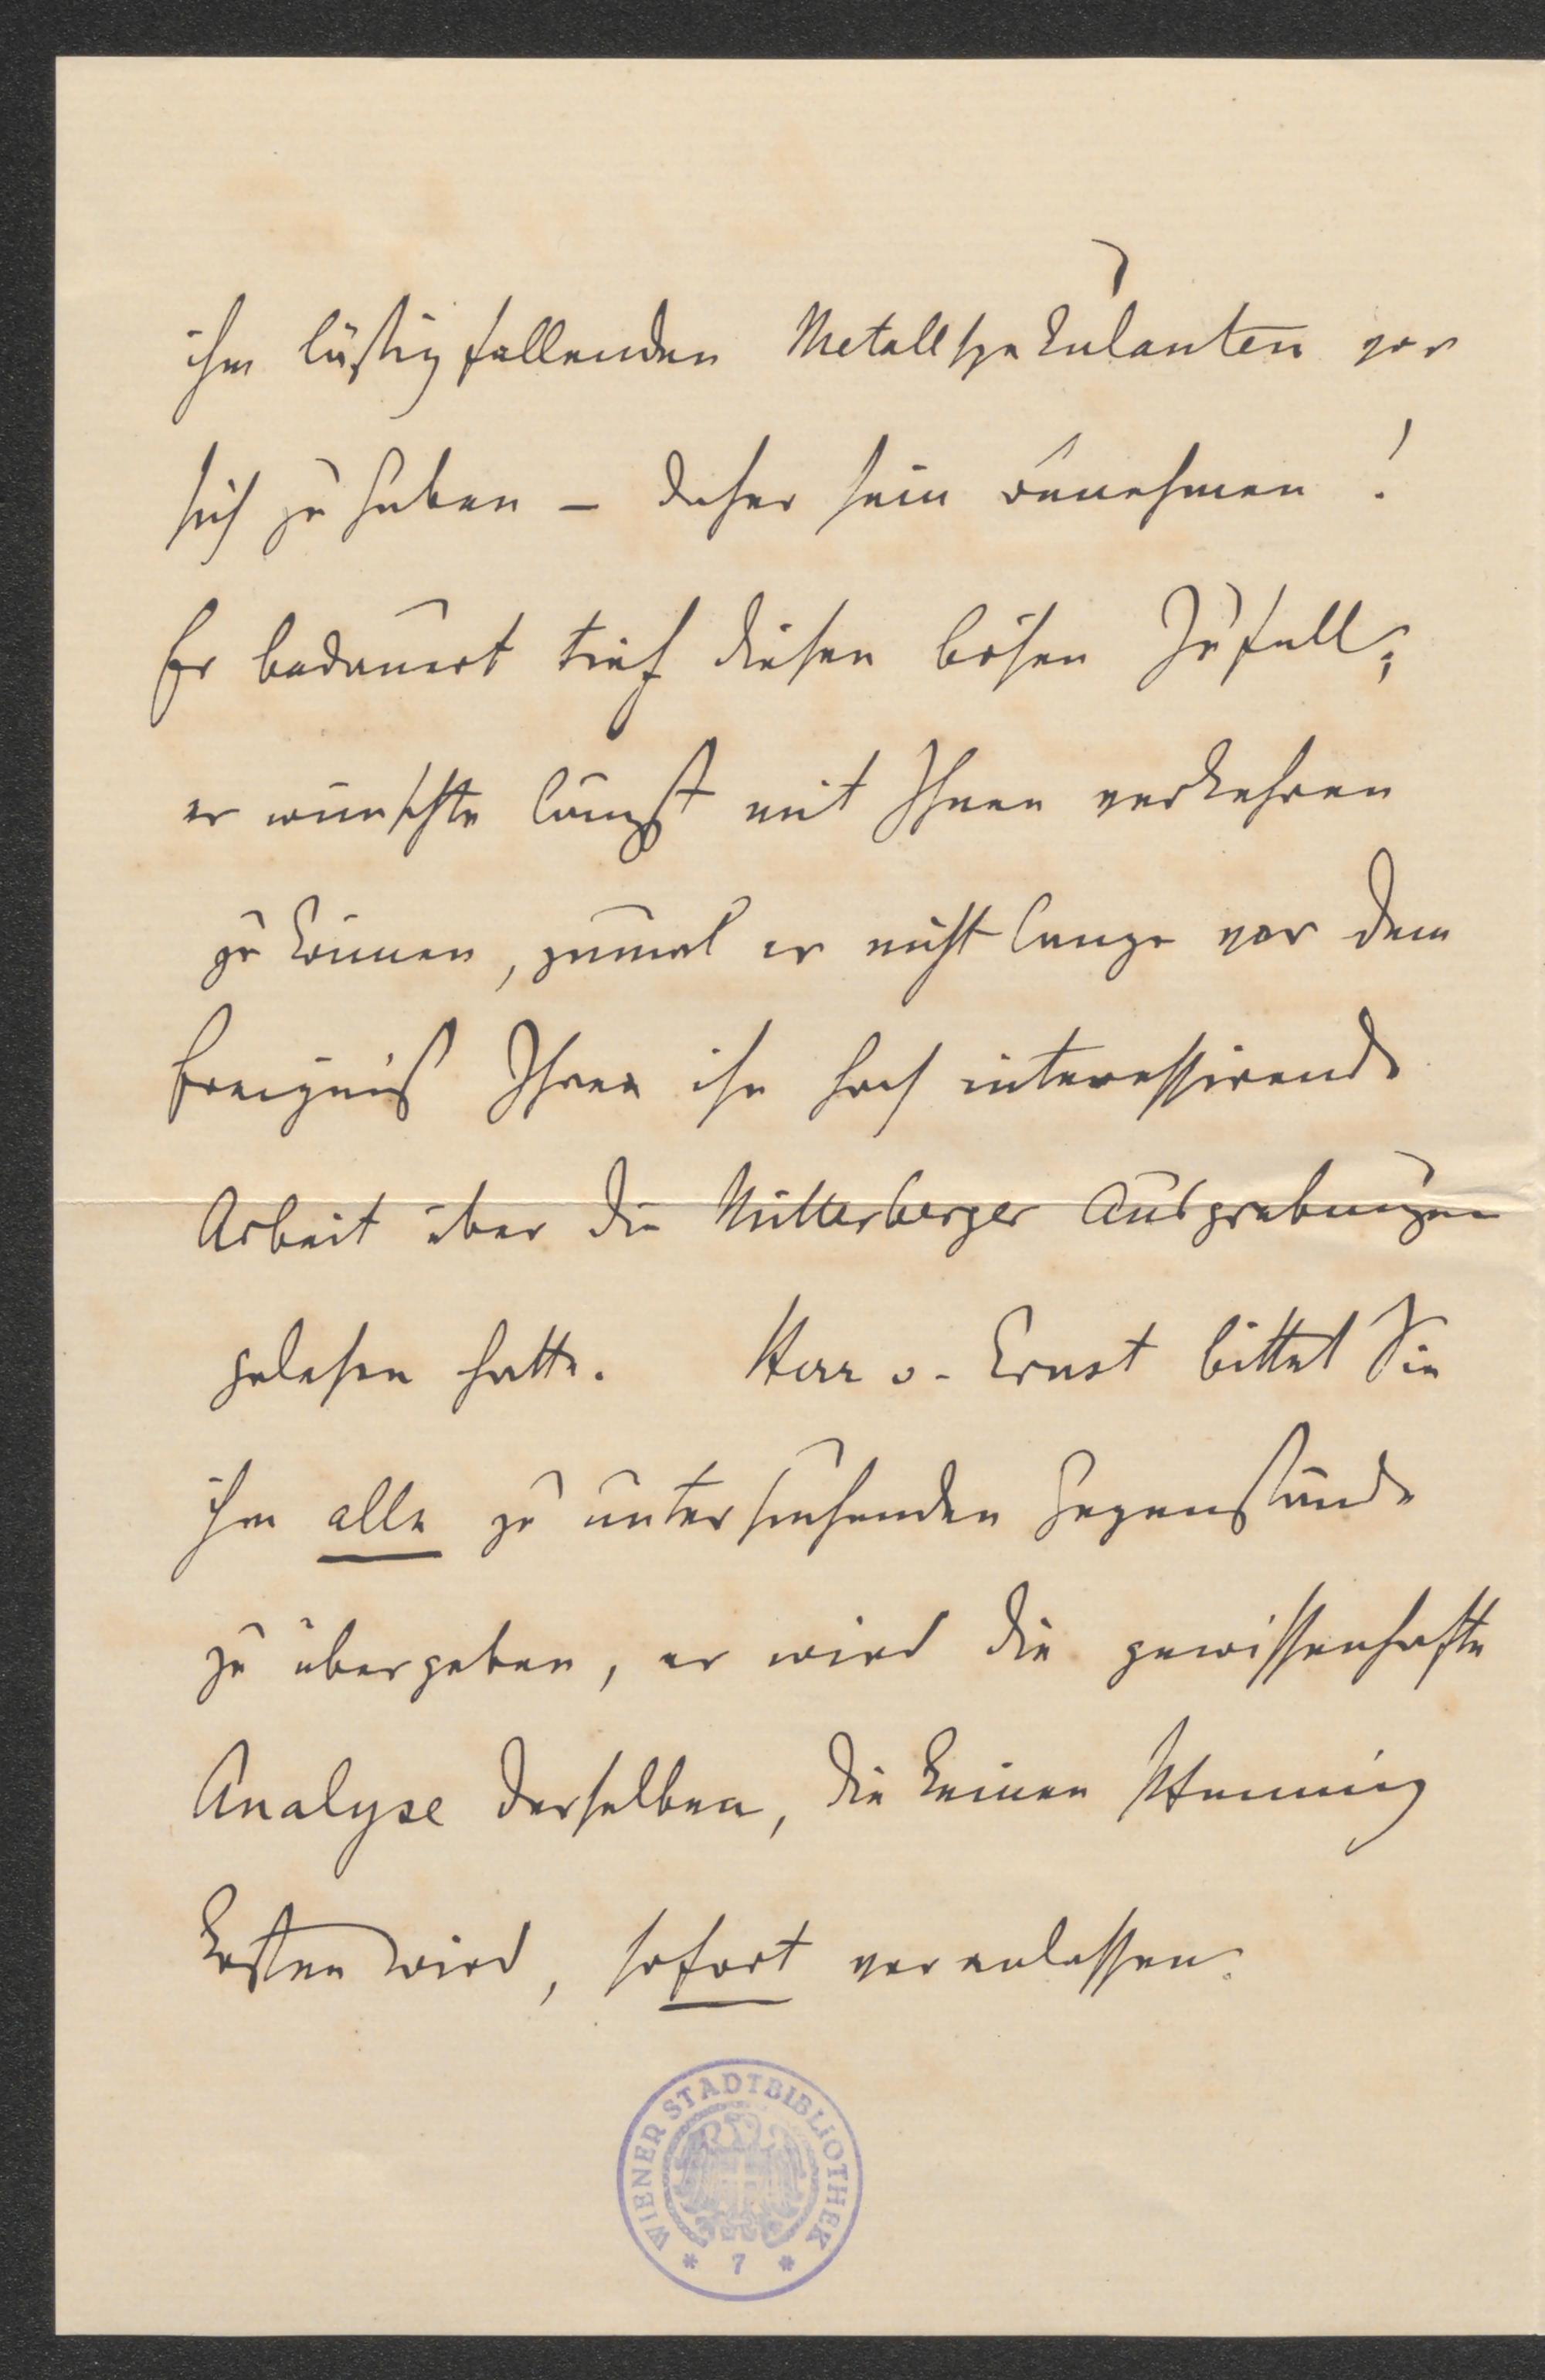 ihm lästig fallenden Metallspekulanten vor
sich zu haben – daher sein Benehmen!
Er bedauert tief diesen bösen Zufall;
er wünschte längst mit Ihnen verkehren
zu können, zumal er nicht lange vor dem
Ereigniß Ihre ihn hoch interessirende
Arbeit über die Mitterberger Ausgrabungen
gelesen hatte. Herr v. Ernst bittet Sie
ihm alle zu untersuchenden Gegenstände
zu übergeben, er wird die gewissenhafte
Analyse derselben, die keinen Pfennig
kosten wird, sofort veranlassen.
WIENER STADTBIBLIOTHEK
* 7 *